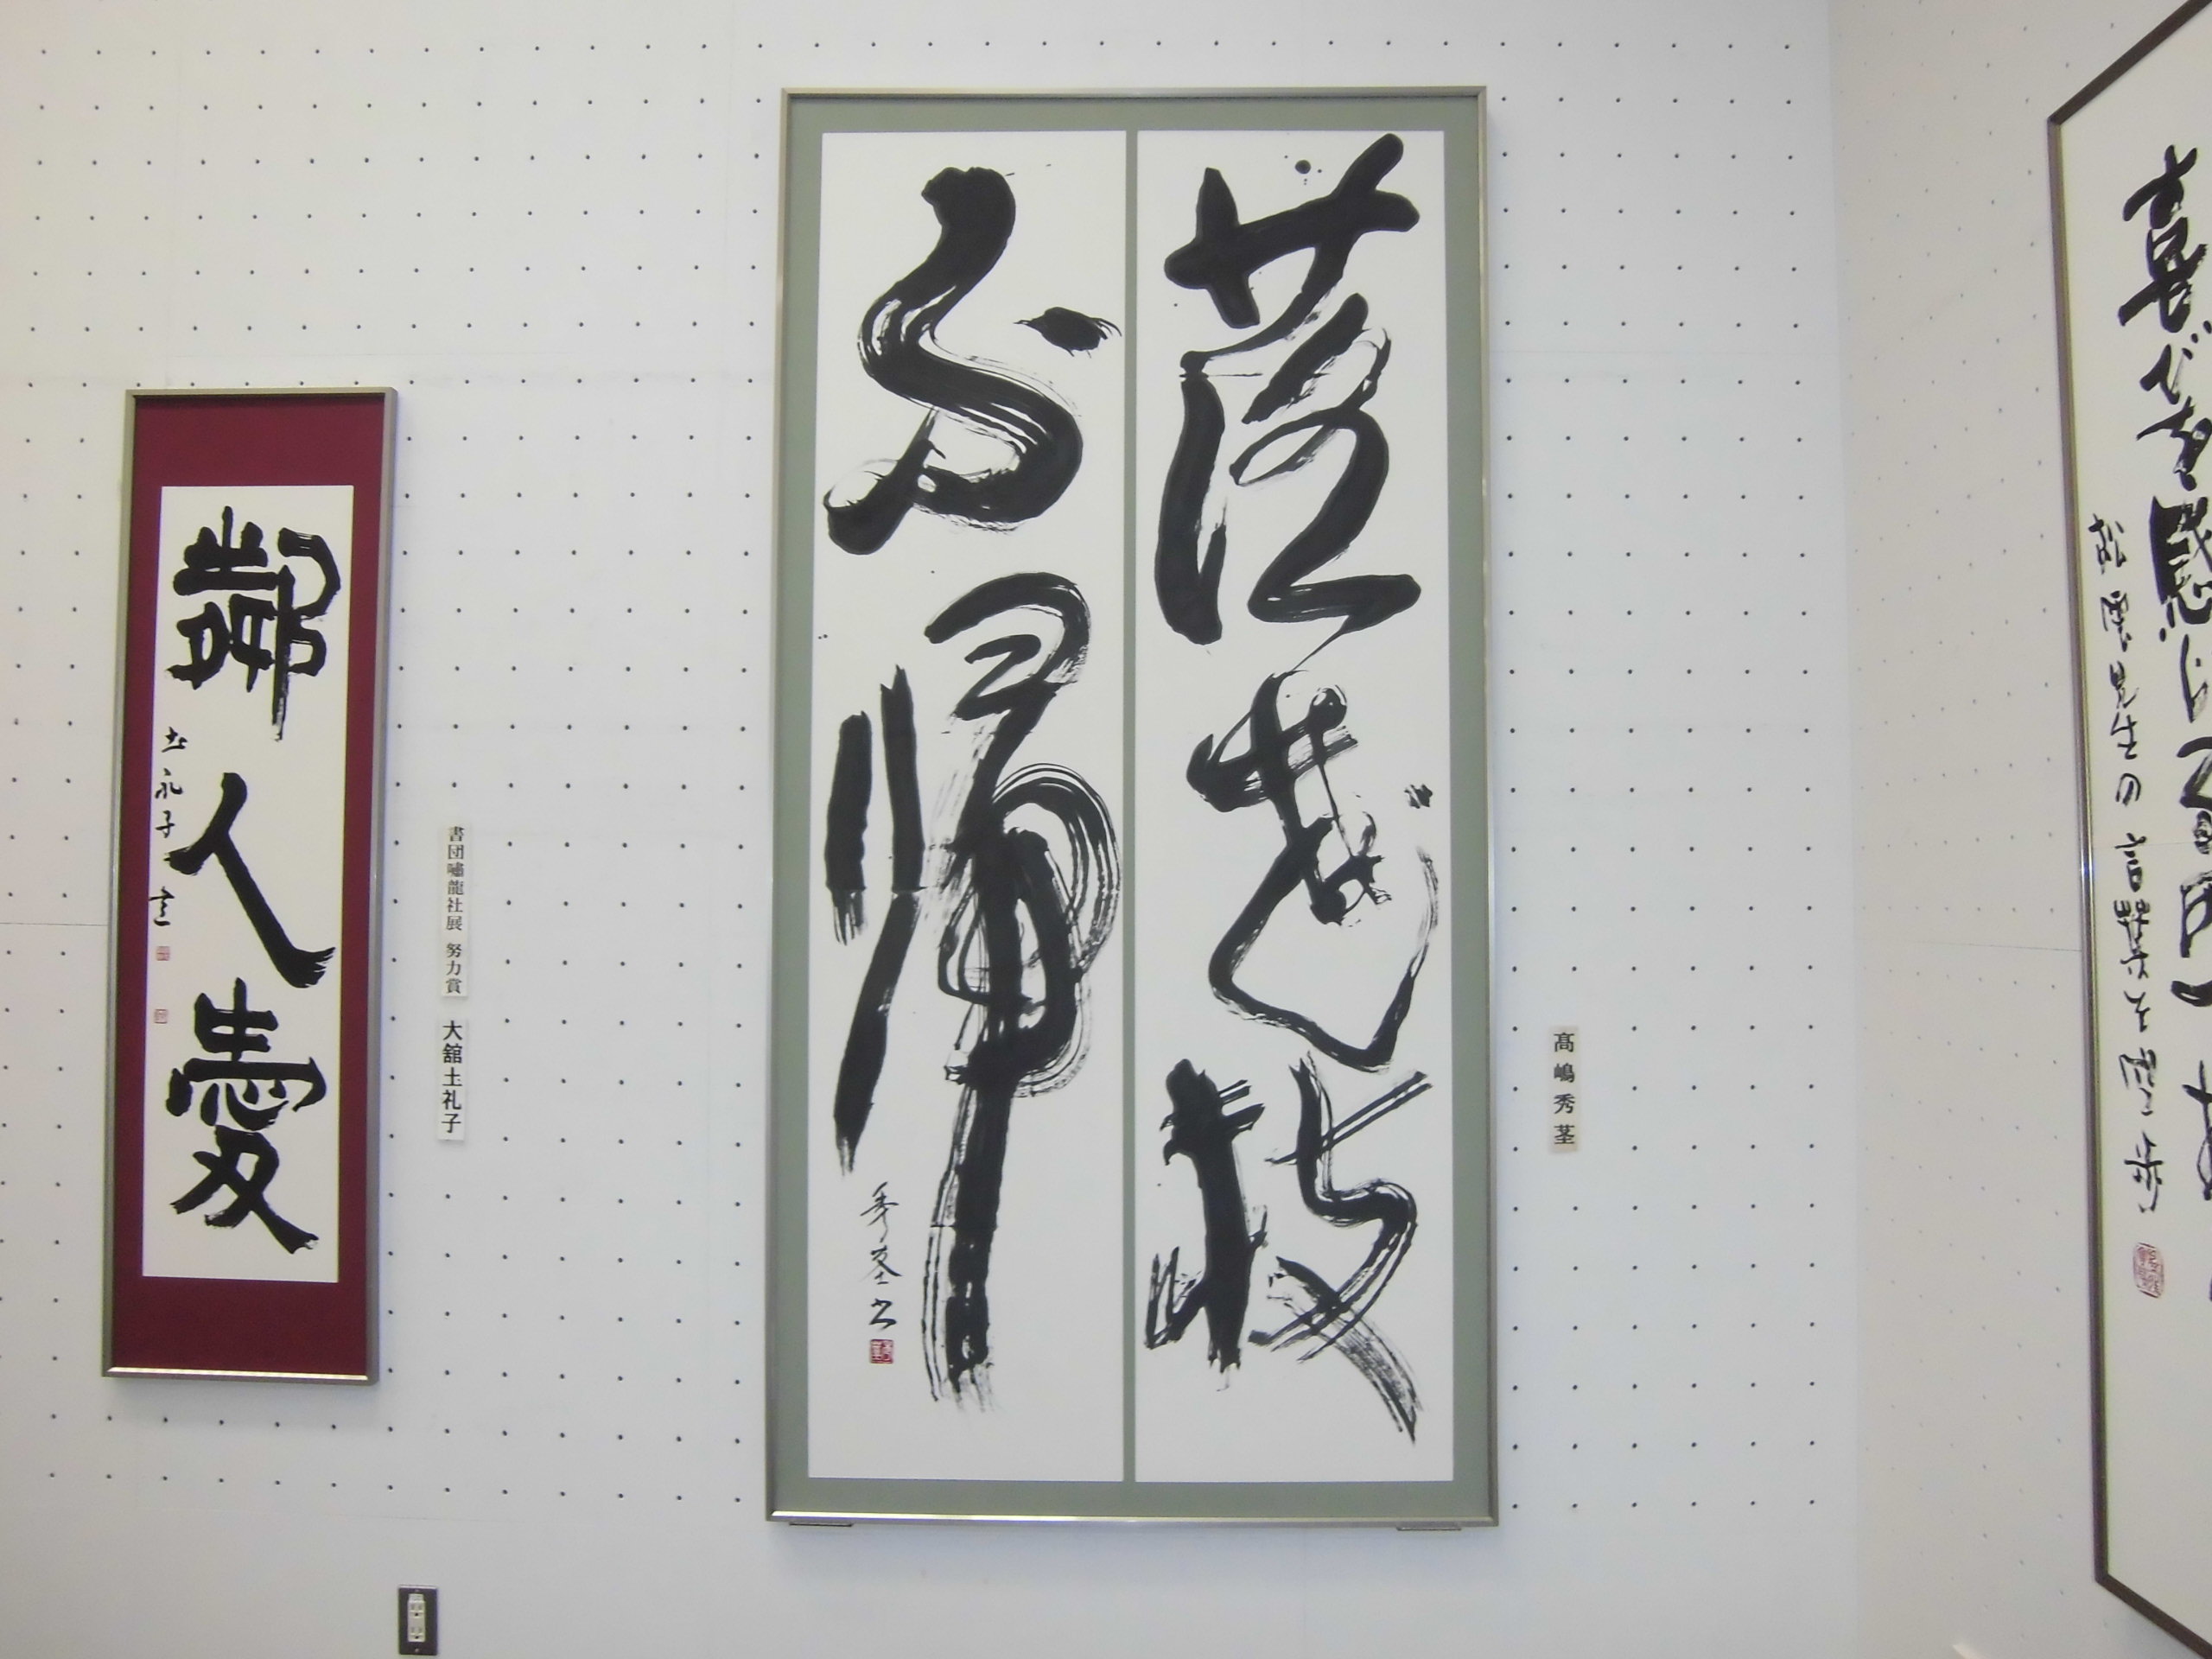 髙嶋秀茎
落花枝
不帰
秀茎書
書団嘯龍社展 努力賞
大舘土礼子
歸人愛
土礼子書
喜びを感じ
先生の言葉を